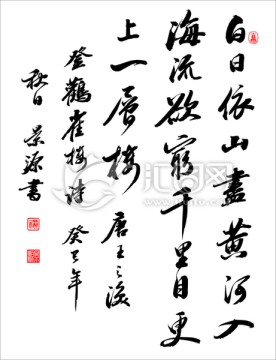 白日依山盡黄河入
海流欲窮千里目更
上一層樓 唐王之渙
登鸛雀樓詩 癸巳年
秋日 景源書
汇图网